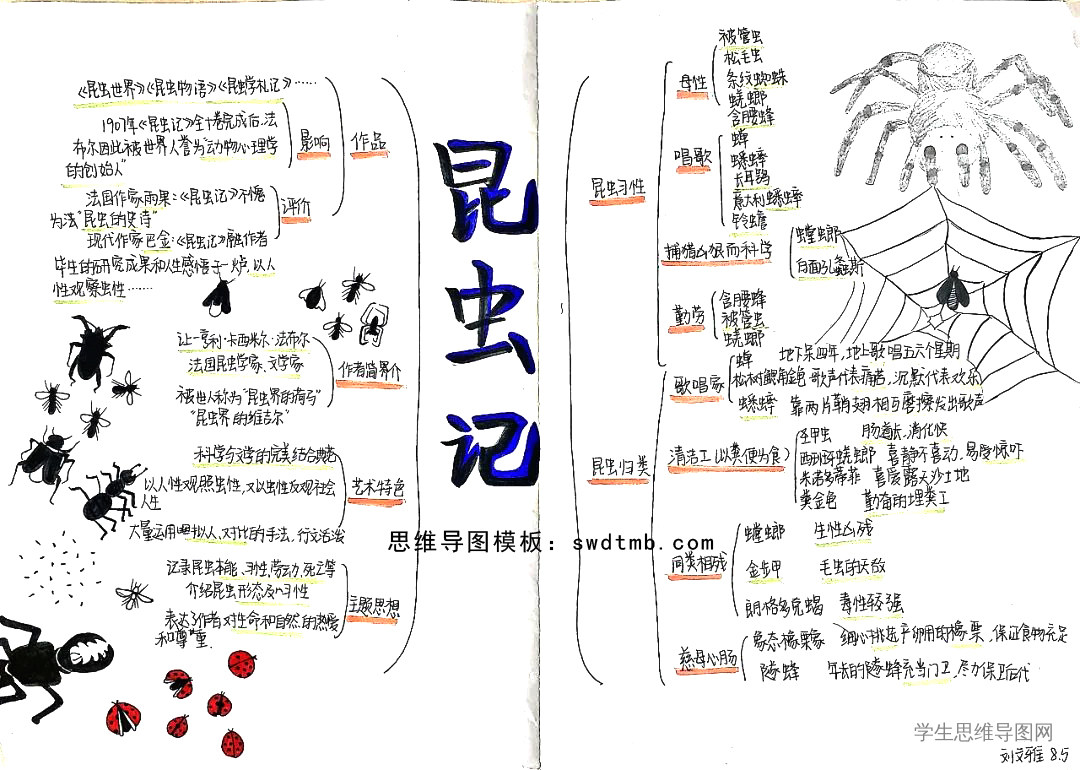 《昆虫世界》《昆虫物语》《昆虫学札记》……
1907年《昆虫记》全十卷完成后,法
布尔因此被世界人誉为"动物心理学
的创始人"
影响
作品
法国作家雨果:《昆虫记》不愧
为法"昆虫的史诗"
现代作家巴金:《昆虫记》融作者
毕生的研究成果和人生感悟于一炉,以人
性观察虫性……
评价
让-亨利·卡西米尔·法布尔
法国昆虫学家、文学家
被世人称为"昆虫界的荷马"
"昆虫界的维吉尔"
作者简界介
科学与文学的完美结合典范
以人性观照虫性,又以虫性反观社会
人生
大量运用拟人、对比的手法,行文活泼
艺术特色
记录昆虫本能、习性、劳动、死亡等
介绍昆虫形态及习性
表达了作者对生命和自然的热爱
和尊重.
主题思想
昆虫记
昆虫习性
母性
被管虫
松毛虫
条纹蜘蛛
蜣螂
含腰蜂
唱歌
蝉
蟋蟀
长耳鸮
意大利蟋蟀
铃蟾
捕猎凶狠而科学
螳螂
白面孔螽斯
勤劳
含腰蜂
被管虫
蜣螂
昆虫归类
歌唱家
蝉 地下呆四年,地上歌唱五六个星期
松树鳃角金龟 歌声代表痛苦,沉默代表欢乐
蟋蟀 靠两片鞘翅相互磨擦发出歌声
清洁工(以粪便为食)
圣甲虫 肠道长,消化快
西班牙蜣螂 喜静不喜动,易受惊吓
米诺多蒂菲 喜爱露天沙土地
粪金龟 勤奋的埋粪工
同类相残
螳螂 生性凶残
金步甲 毛虫的天敌
朗格多克蝎 毒性较强
慈母心肠
象态橡栗象 细心挑选产卵用的橡栗,保证食物充足
隧蜂 年长的隧蜂充当门卫,尽力保卫后代
思维导图模板:swdtmb.com
学生思维导图网
刘文雅 8.5